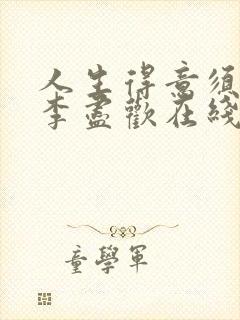 人生得意须
李盡歡在綫
童學軍